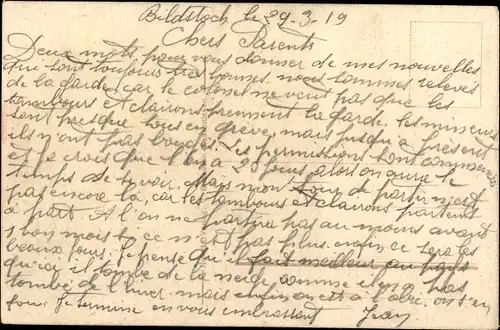 Bildstock, le 29-3-19
Chers Parents
Deux mots pour vous donner de mes nouvelles
qui sont toujours très bonnes. nous sommes relevés
de la garde, car le colonel ne veut pas que les
tambours et clairons prennent la garde. les mineurs
sont presque tous en grève, mais jusqu'à présent
ils n'ont pas bougés. Les permissions sont commencées
et je crois que l'on a 20 jours, alors on aura le
temps de se voir. Mais mon tour de partir n'est
pas encore là, car les tambours et clairons partent
à part. A l'on ne partira pas au moins avant
bon mois et ce n'est pas plus mal ce sera les
beaux jours. Je pense qu'il fait meilleur au pays
qu'ici, il tombe de la neige comme il n'a pas
tombé de l'hiver, mais on est à l'abri, on s'en
fou. Je termine en vous embrassant Jean